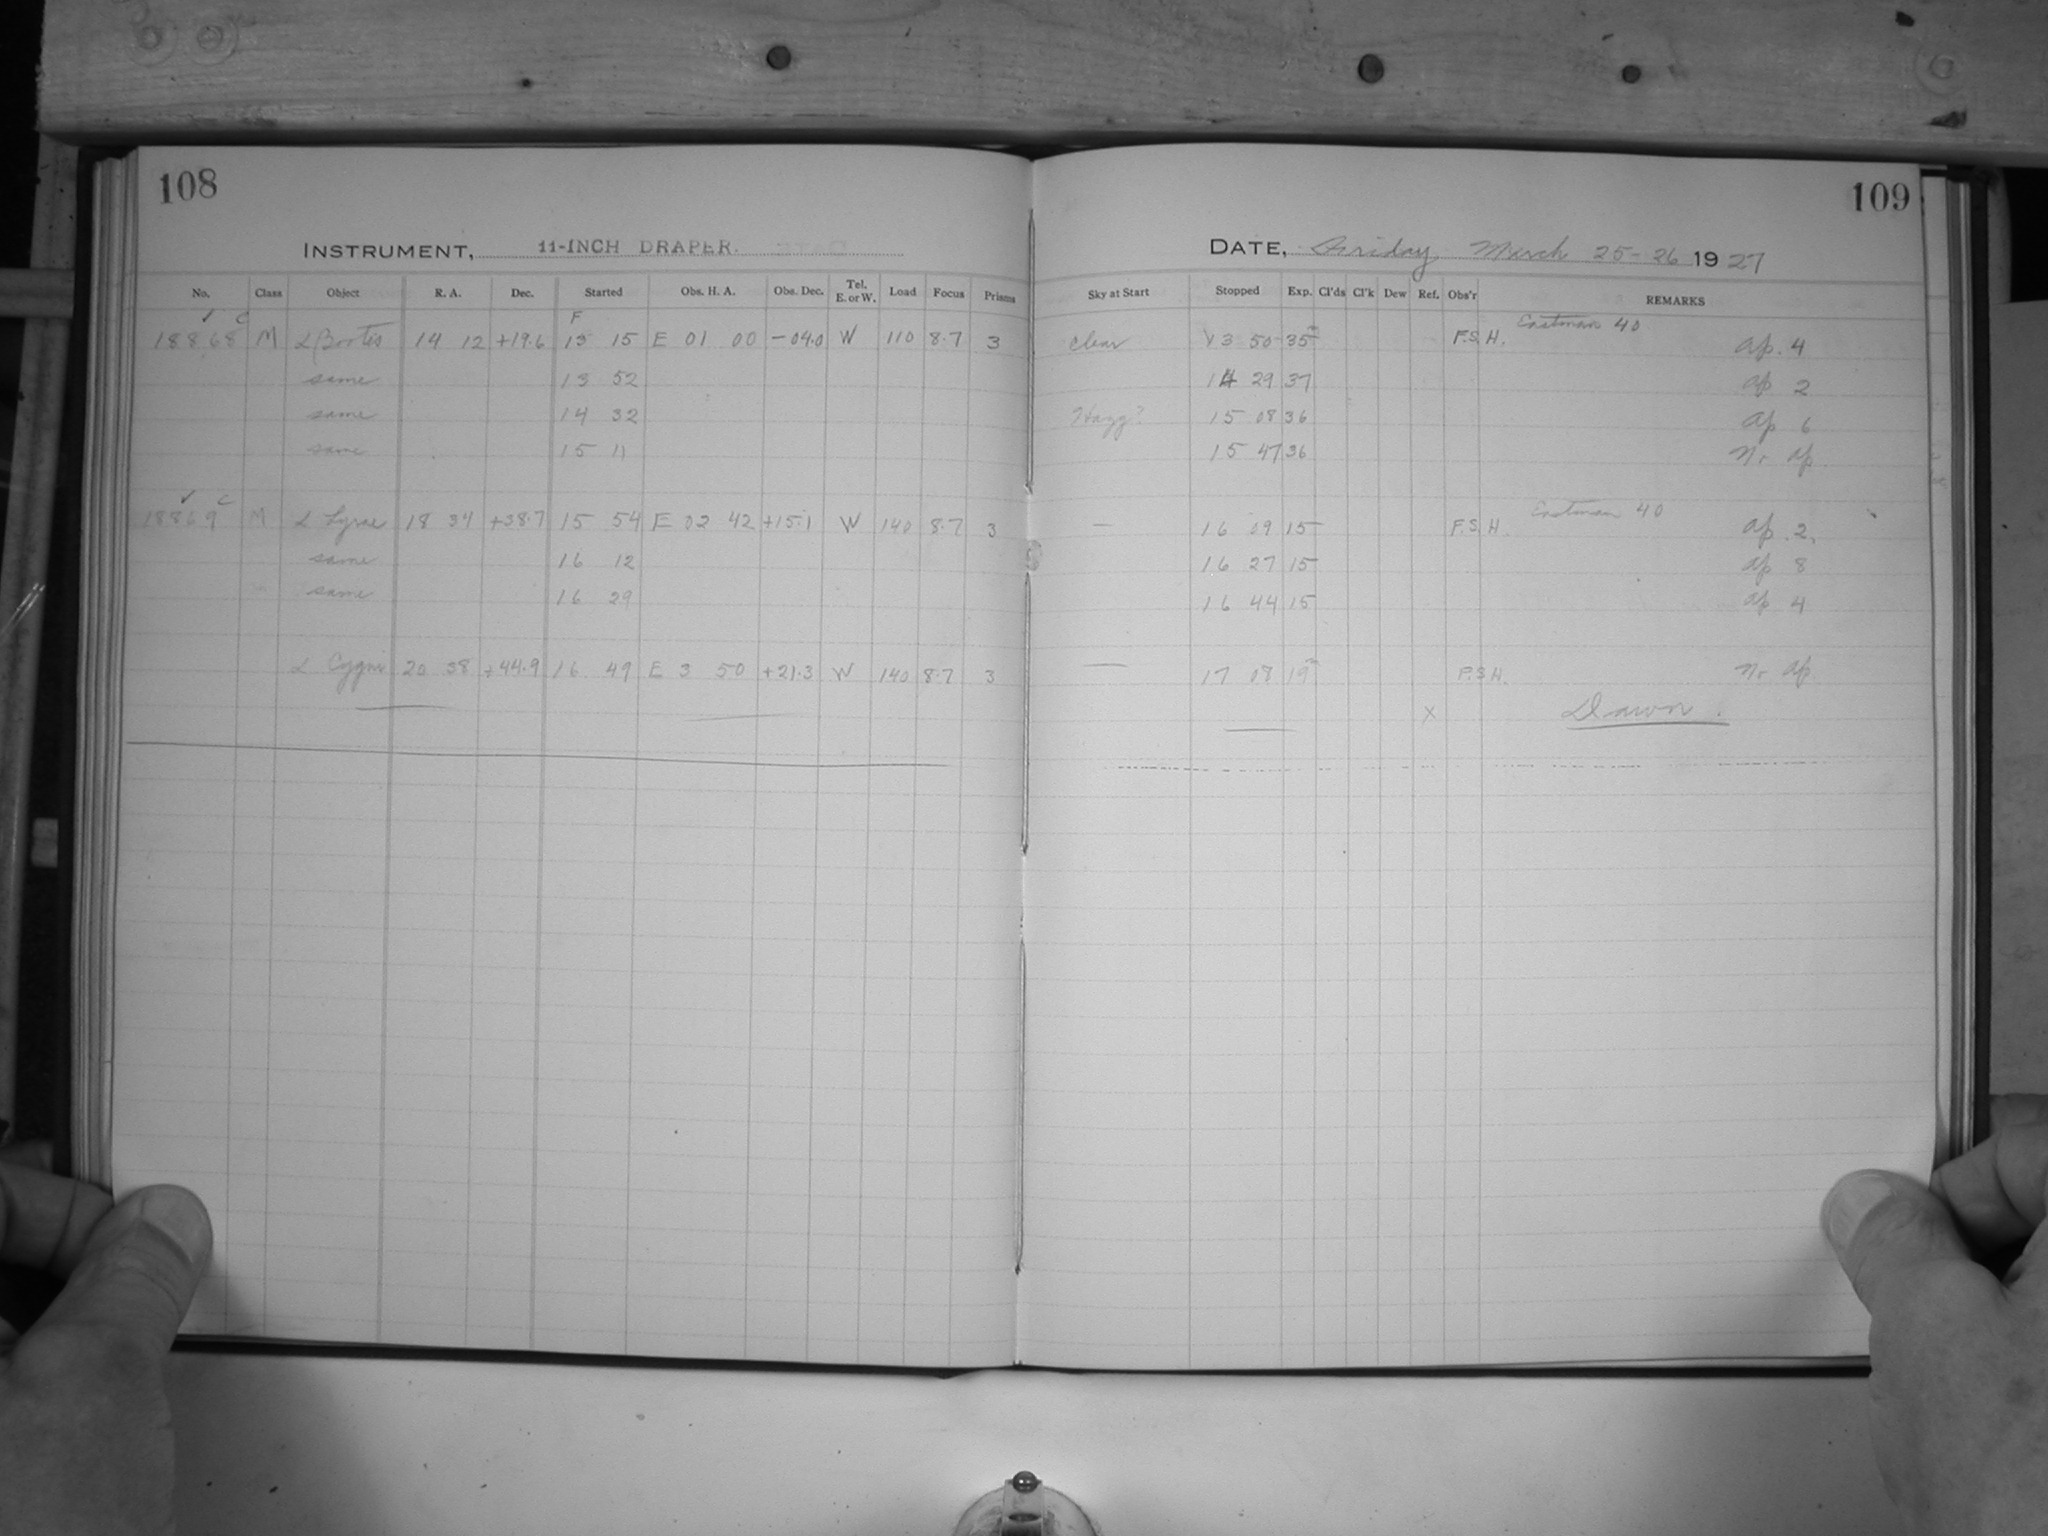 108
INSTRUMENT, 11-INCH DRAPER.
No. Class Object R. A. Dec. Started Obs. H. A. Obs. Dec. Tel. E. or W. Load Focus Prisms
✓ C F
18868 M α Bootis 14 12 +19.6 13 15 E 01 00 -04.0 W 110 8.7 3
same 13 52
same 14 32
same 15 11
✓ C
18869 M α Lyrae 18 34 +38.7 15 54 E 02 42 +15.1 W 140 8.7 3
same 16 12
same 16 29
α Cygni 20 38 +44.9 16 49 E 3 50 +21.3 W 140 8.7 3
109
DATE, Friday March 25-26 1927
Sky at Start Stopped Exp. Cl'ds Cl'k Dew Ref. Obs'r REMARKS
Eastman 40
clear 13 50 35m F.S.H. Ap. 4
14 29 37 Ap 2
Hazy? 15 08 36 Ap 6
15 47 36 No Ap
Eastman 40
— 16 09 15 F.S.H. Ap. 2.
16 27 15 Ap 8
16 44 15 Ap 4
— 17 08 19m F.S.H. No Ap.
x Dawn.